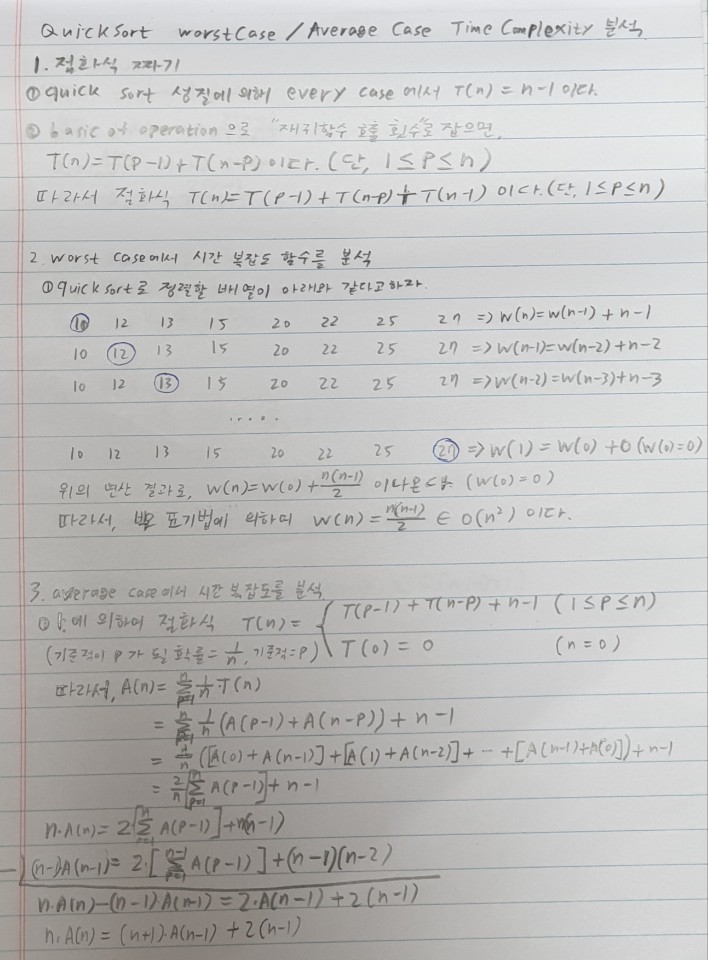 Quicksort worstcase / Average Case Time Complexity 분석
1. 점화식 짜기
① quick sort 성질에 의해 every case에서 T(n) = n-1 이다.
② basic of operation으로 "재귀함수 호출 횟수"로 잡으면,
T(n)=T(P-1)+T(n-P) 이다. (단, 1≤P≤n)
따라서 점화식 T(n)=T(P-1)+T(n-P)+T(n-1) 이다.(단, 1≤P≤n)
2. worst case에서 시간 복잡도 함수를 분석
① quicksort로 정렬할 배열이 아래와 같다고하자.
10 12 13 15 20 22 25 27 => W(n)=W(n-1)+n-1
10 12 13 15 20 22 25 27 => W(n-1)=W(n-2)+n-2
10 12 13 15 20 22 25 27 => W(n-2)=W(n-3)+n-3
.....
10 12 13 15 20 22 25 27 => W(1)=W(0)+0 (W(0)=0)
위의 연산 결과로, W(n)=W(0)+n(n-1)/2 이나온다. (W(0)=0)
따라서, 표기법에 의하여 W(n)=n(n-1)/2 ∈ O(n²) 이다.
3. average case에서 시간 복잡도를 분석
① 1.에 의하여 점화식 T(n)= { T(P-1)+T(n-P)+n-1 (1≤P≤n)
(기준점이 P가 될 확률=1/n, 기준점=P) T(0)=0 (n=0)
따라서, A(n)= Σ_{P=1}^{n} 1/n·T(n)
= Σ_{P=1}^{n} 1/n (A(P-1)+A(n-P))+n-1
= 1/n ([A(0)+A(n-1)]+[A(1)+A(n-2)]+ ··· +[A(n-1)+A(0)])+n-1
= 2/n [Σ_{P=1}^{n} A(P-1)]+n-1
n·A(n)= 2[Σ_{P=1}^{n} A(P-1)]+n(n-1)
-) (n-1)A(n-1)= 2·[Σ_{P=1}^{n-1} A(P-1)]+(n-1)(n-2)
n·A(n)-(n-1)·A(n-1)=2·A(n-1)+2(n-1)
n·A(n)=(n+1)·A(n-1)+2(n-1)